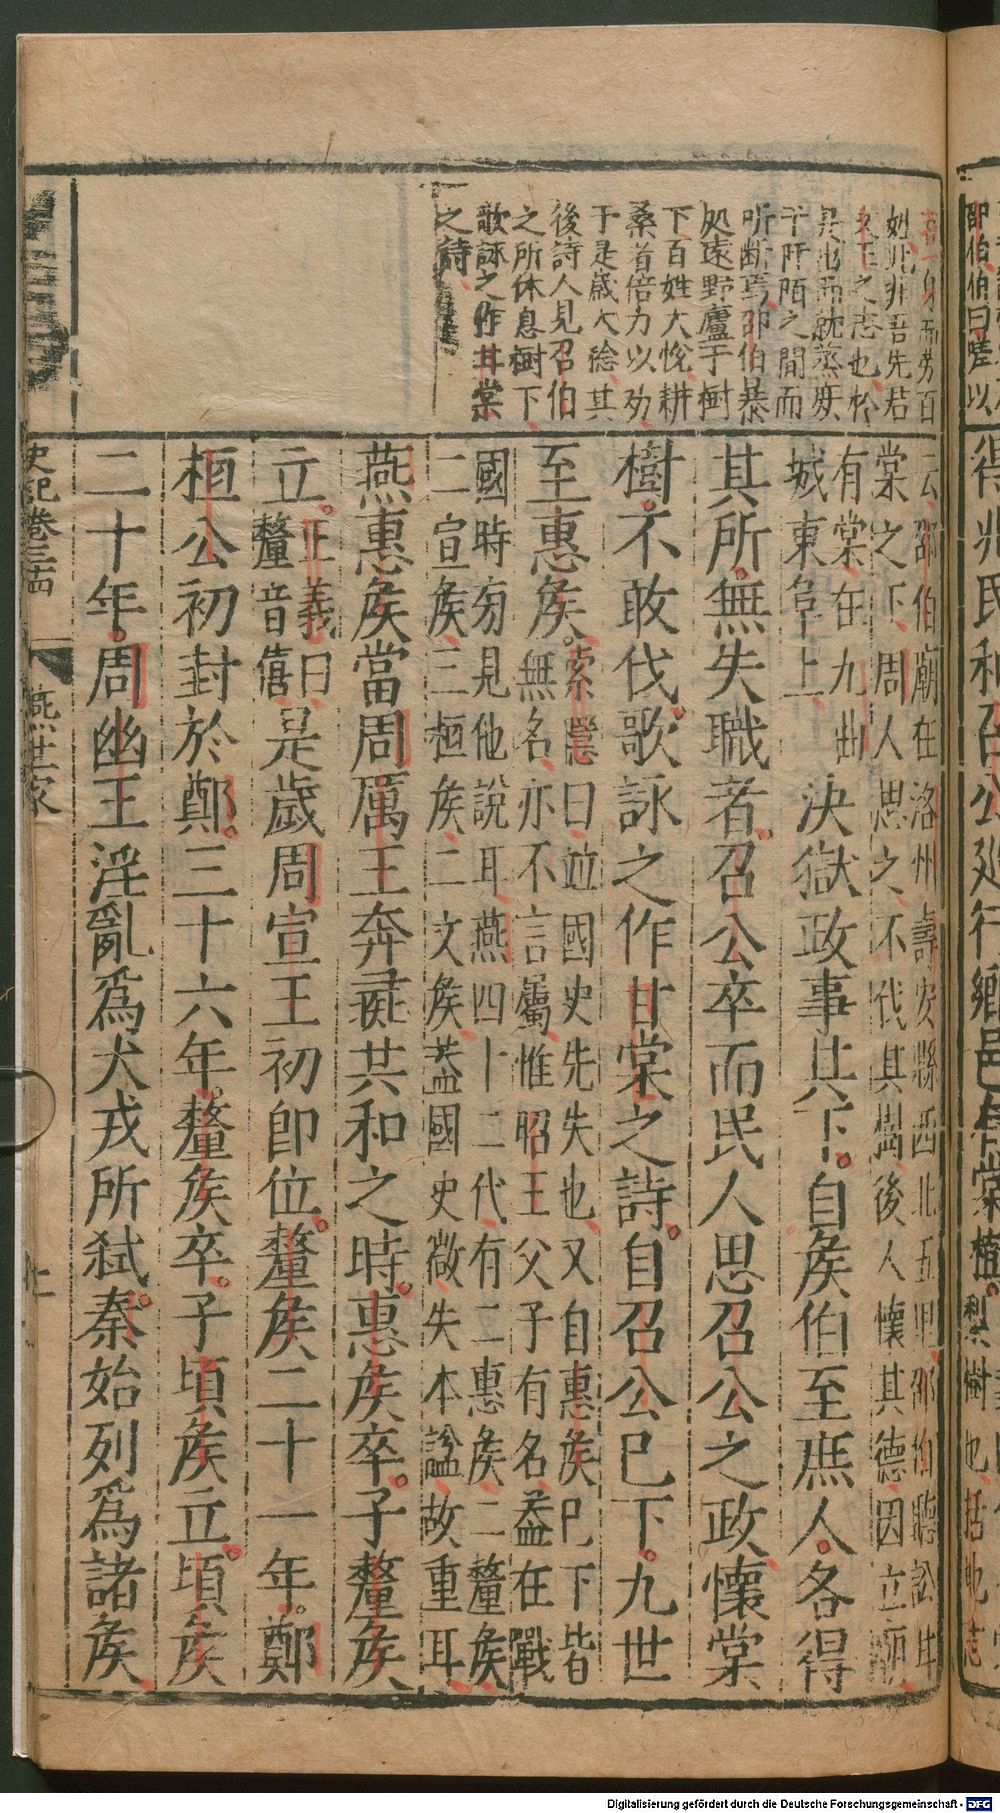 勞一身而勞百
姓非吾先君
文王之志也於
是出而就烝庶
于阡陌之間而
听断焉邵伯暴
処遠野廬于樹
下百姓大悅耕
桑者倍力以劝
于是歲大稔其
後詩人見召伯
之所休息樹下
歌詠之作甘棠
之詩
云邵伯廟在洛州壽安縣西北五里邵伯聽訟甘
棠之下周人思之不伐其樹後人懷其德因立廟
有棠在九曲
城東阜上
決獄政事其下自矦伯至庶人各得
其所無失職者召公卒而民人思召公之政懷棠
樹不敢伐歌詠之作甘棠之詩自召公已下九世
至惠矦
索隱曰並國史先失也又自惠矦已下皆
無名亦不言屬惟昭王父子有名葢在戰
國時旁見他說耳燕四十二代有二惠矦二釐矦
二宣矦三桓矦二文矦葢國史微失本謚故重耳
燕惠矦當周厲王奔彘共和之時惠矦卒子釐矦
立
正義曰
釐音僖
是歲周宣王初即位釐矦二十一年鄭
桓公初封於鄭三十六年釐矦卒子頃矦立頃矦
二十年周幽王淫亂爲犬戎所弑秦始列爲諸矦
史記卷三十四
燕世家
邵伯伯曰嗟以
得兆民和召公廵行鄉邑有棠樹
棃樹也括地志
Digitalisierung gefördert durch die Deutsche Forschungsgemeinschaft - DFG